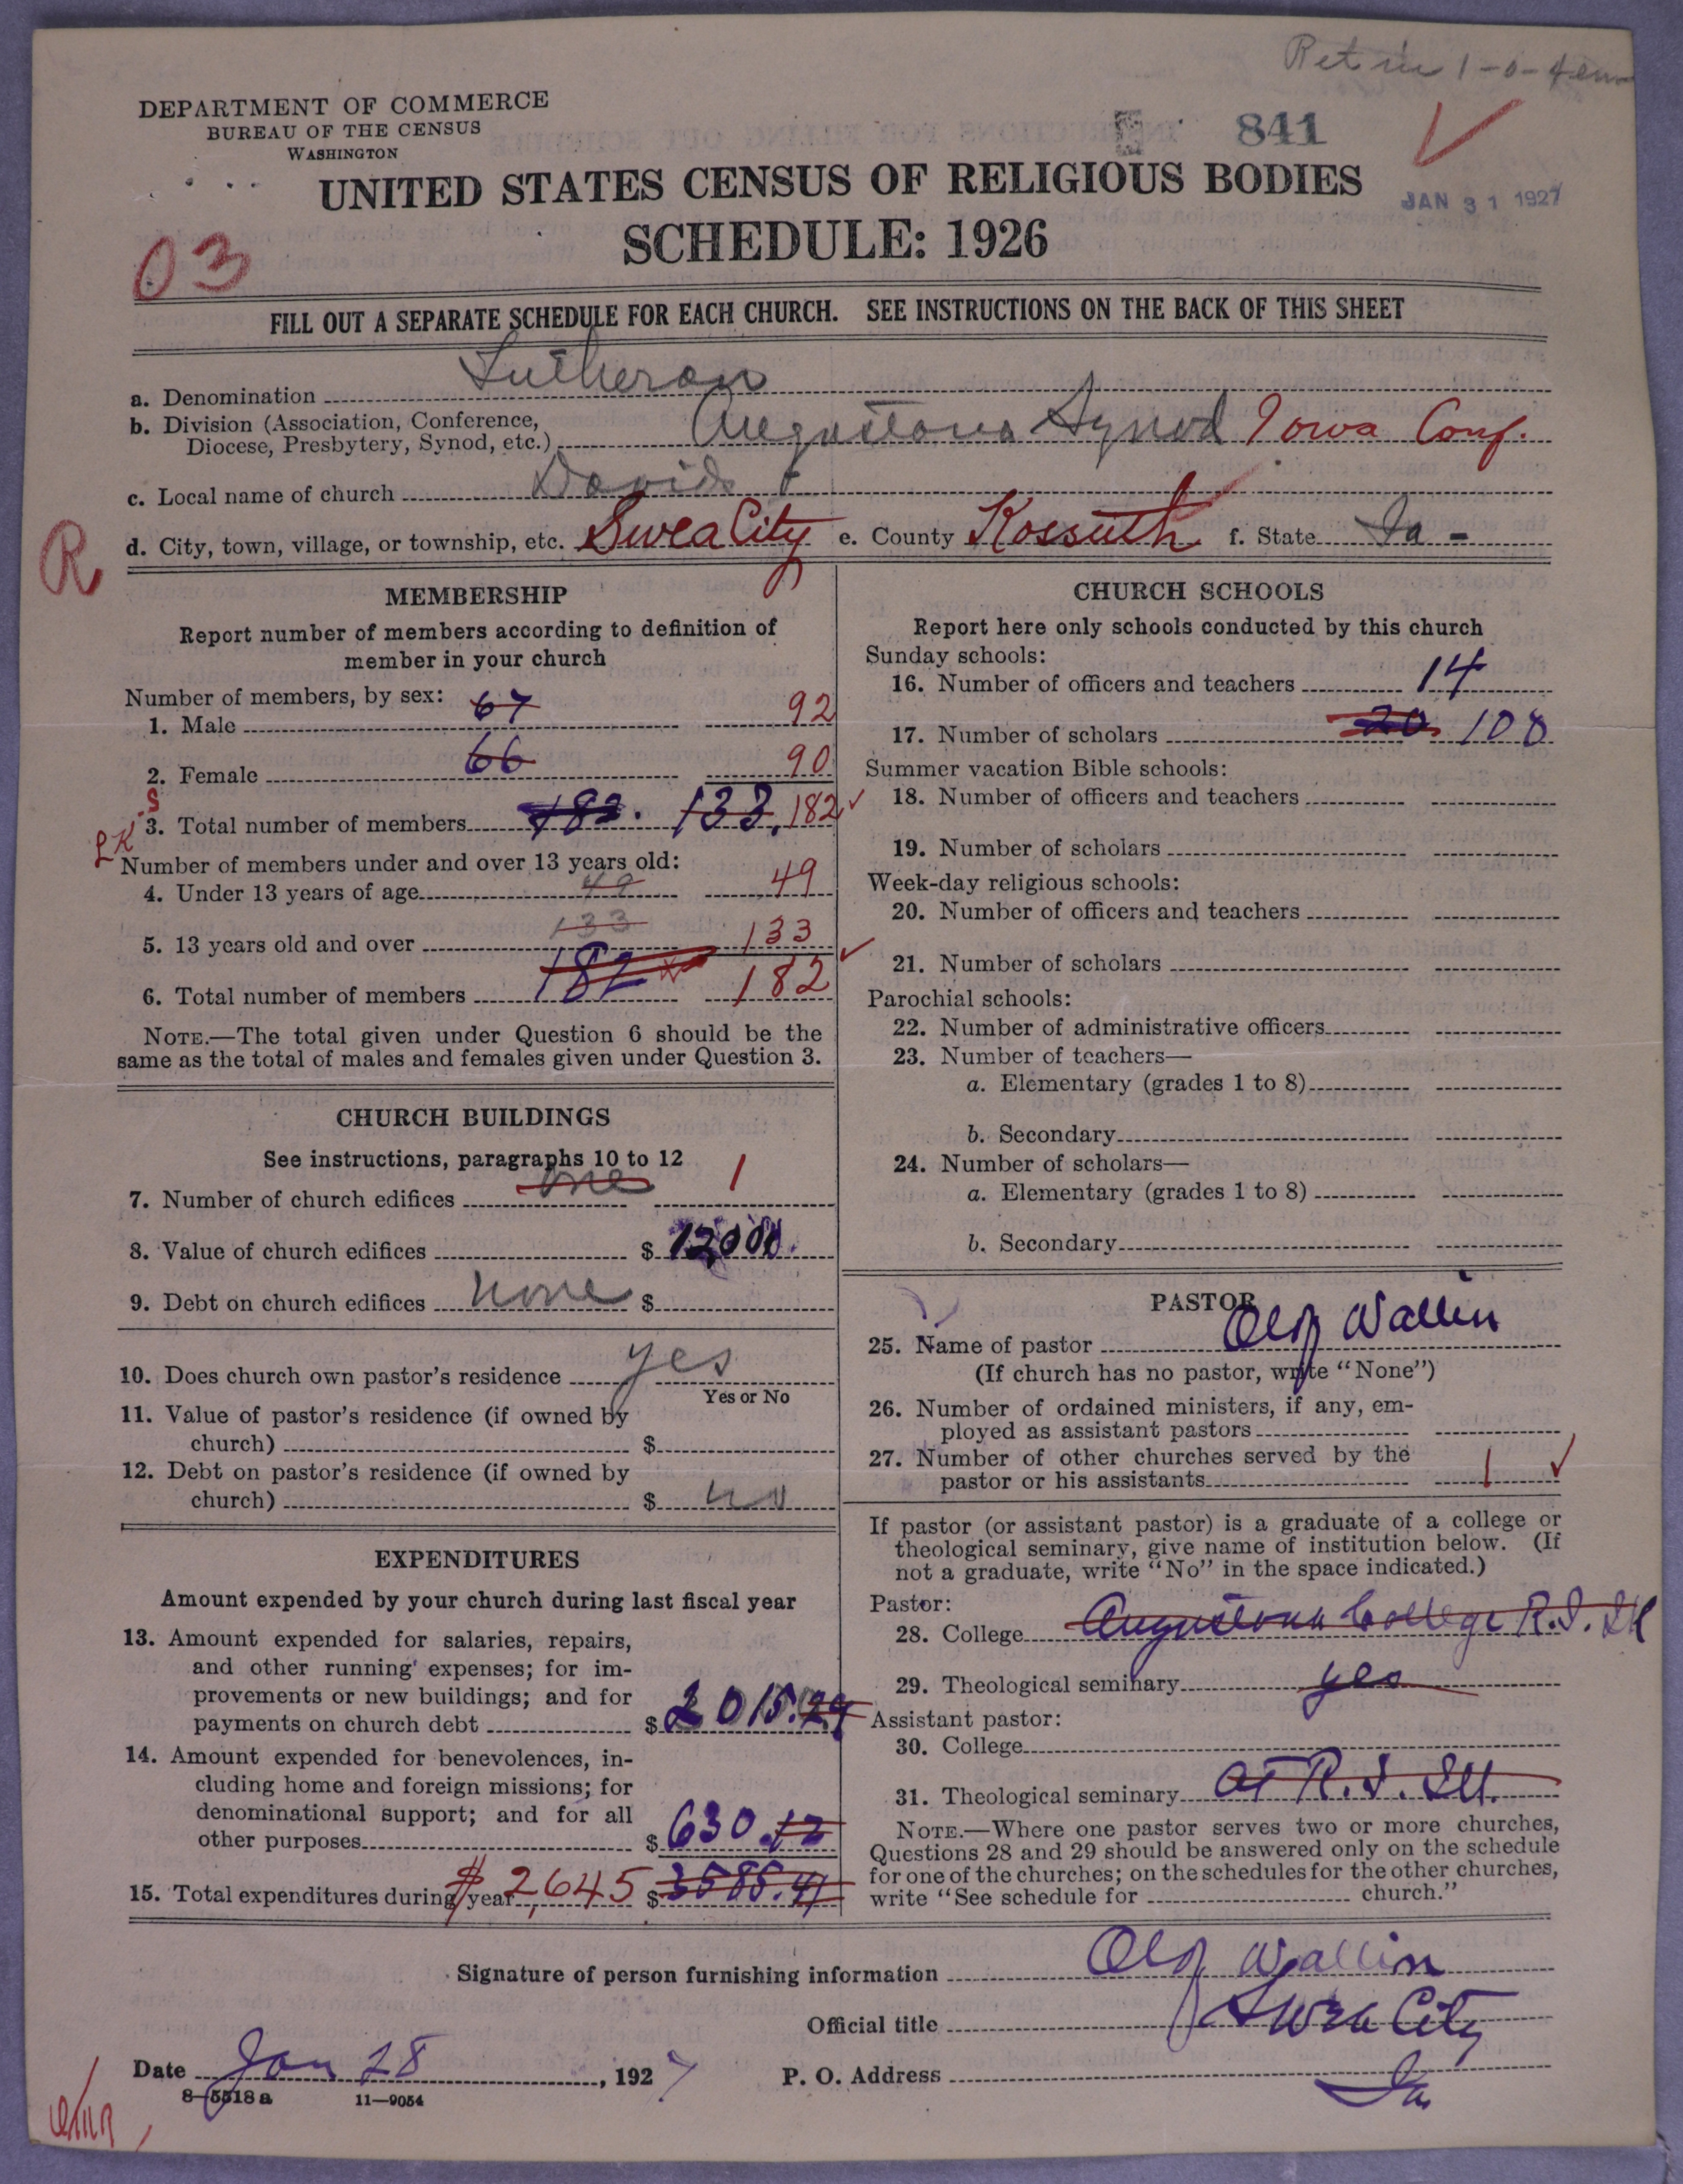 DEPARTMENT OF COMMERCE
BUREAU OF THE CENSUS
WASHINGTON
841
UNITED STATES CENSUS OF RELIGIOUS BODIES
JAN 31 1927
SCHEDULE: 1926
03
FILL OUT A SEPARATE SCHEDULE FOR EACH CHURCH. SEE INSTRUCTIONS ON THE BACK OF THIS SHEET
a. Denomination Lutheran
b. Division (Association, Conference,
Diocese, Presbytery, Synod, etc.) Augustana Synod Iowa Conf.
c. Local name of church Davids
d. City, town, village, or township, etc. Swea City e. County Kossuth f. State Ia -
R
MEMBERSHIP
Report number of members according to definition of
member in your church
Number of members, by sex:
1. Male 67 92
2. Female 66 90
3. Total number of members 182. 133, 182
Number of members under and over 13 years old:
4. Under 13 years of age 49 49
5. 13 years old and over 133 133
6. Total number of members 182 182
NOTE.—The total given under Question 6 should be the
same as the total of males and females given under Question 3.
CHURCH BUILDINGS
See instructions, paragraphs 10 to 12
7. Number of church edifices one 1
8. Value of church edifices $ 12,000.
9. Debt on church edifices none $
10. Does church own pastor's residence yes
Yes or No
11. Value of pastor's residence (if owned by
church) $
12. Debt on pastor's residence (if owned by
church) $
EXPENDITURES
Amount expended by your church during last fiscal year
13. Amount expended for salaries, repairs,
and other running expenses; for im-
provements or new buildings; and for
payments on church debt $ 2015.29
14. Amount expended for benevolences, in-
cluding home and foreign missions; for
denominational support; and for all
other purposes $ 630.12
15. Total expenditures during year $2,645 $ 3585.41
CHURCH SCHOOLS
Report here only schools conducted by this church
Sunday schools:
16. Number of officers and teachers 14
17. Number of scholars 20 108
Summer vacation Bible schools:
18. Number of officers and teachers
19. Number of scholars
Week-day religious schools:
20. Number of officers and teachers
21. Number of scholars
Parochial schools:
22. Number of administrative officers
23. Number of teachers—
a. Elementary (grades 1 to 8)
b. Secondary
24. Number of scholars—
a. Elementary (grades 1 to 8)
b. Secondary
PASTOR
25. Name of pastor Olof Wallin
(If church has no pastor, write "None")
26. Number of ordained ministers, if any, em-
ployed as assistant pastors
27. Number of other churches served by the
pastor or his assistants 1
If pastor (or assistant pastor) is a graduate of a college or
theological seminary, give name of institution below. (If
not a graduate, write "No" in the space indicated.)
Pastor:
28. College Augustana College R.I. Ill
29. Theological seminary yes
Assistant pastor:
30. College
31. Theological seminary at R.I. Ill.
NOTE.—Where one pastor serves two or more churches,
Questions 28 and 29 should be answered only on the schedule
for one of the churches; on the schedules for the other churches,
write "See schedule for church."
Signature of person furnishing information Olof Wallin
Official title
Swea City
Date Jan 28, 1927
P. O. Address Ia.
8—5518 a 11—9054